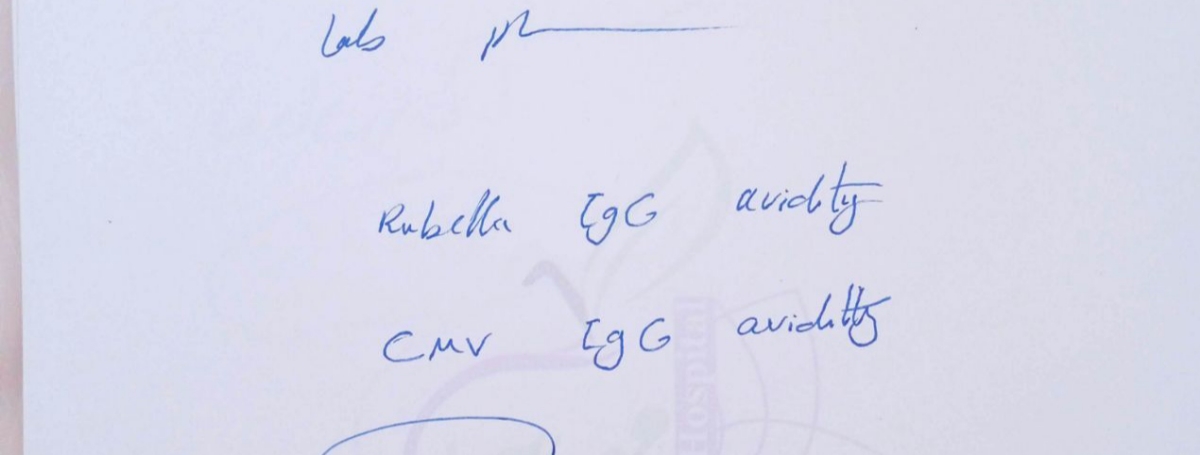 Labs pls
Rubella IgG avidity
CMV IgG avidity
Hospital